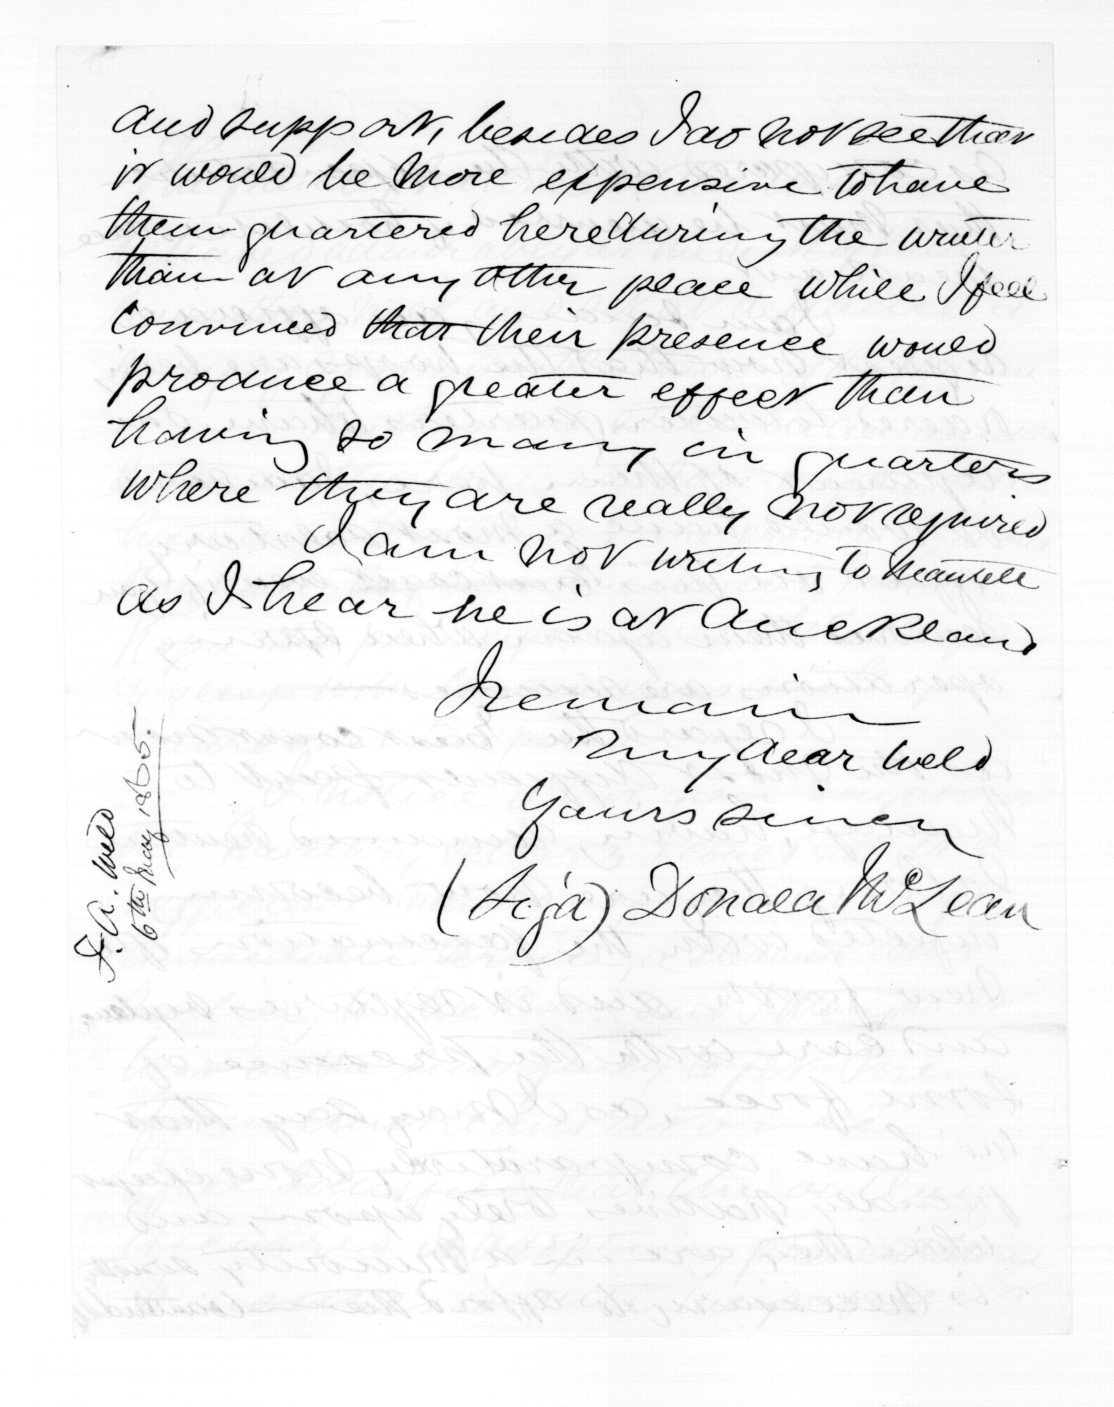 and support, besides I do not see that
it would be more expensive to have
them quartered here during the winter
than at any other place while I feel
convinced that their presence would
produce a greater effect than
having so many in quarters
where they are really not required
I am not writing to Mantell
as I hear he is at Auckland
I remain
My dear Weld
Yours sincy
(Sigd) Donald McLean
F. A. Weld
6th May 1865.